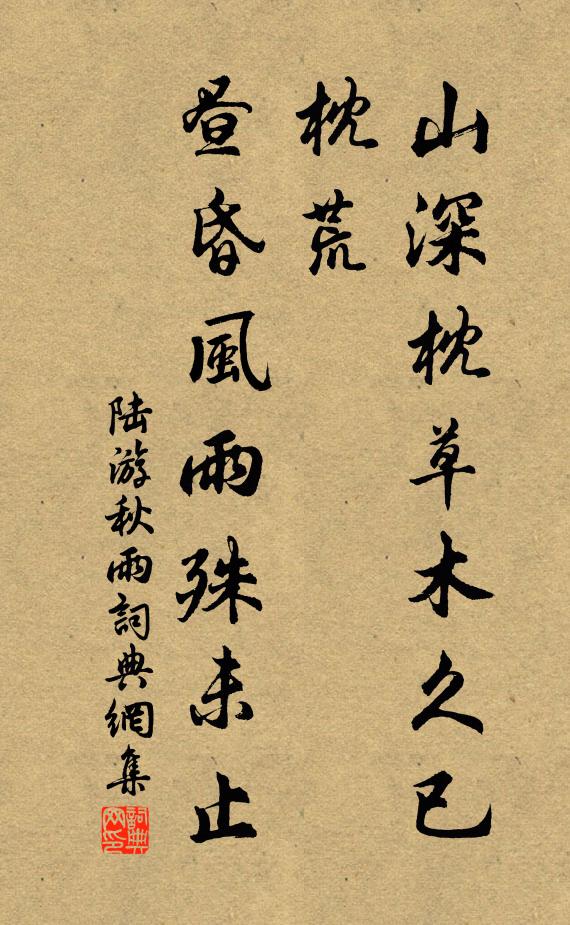 山深枕草木久已
枕荒
昼昏風雨殊未止
陆游秋雨詞典網集
詞典网印